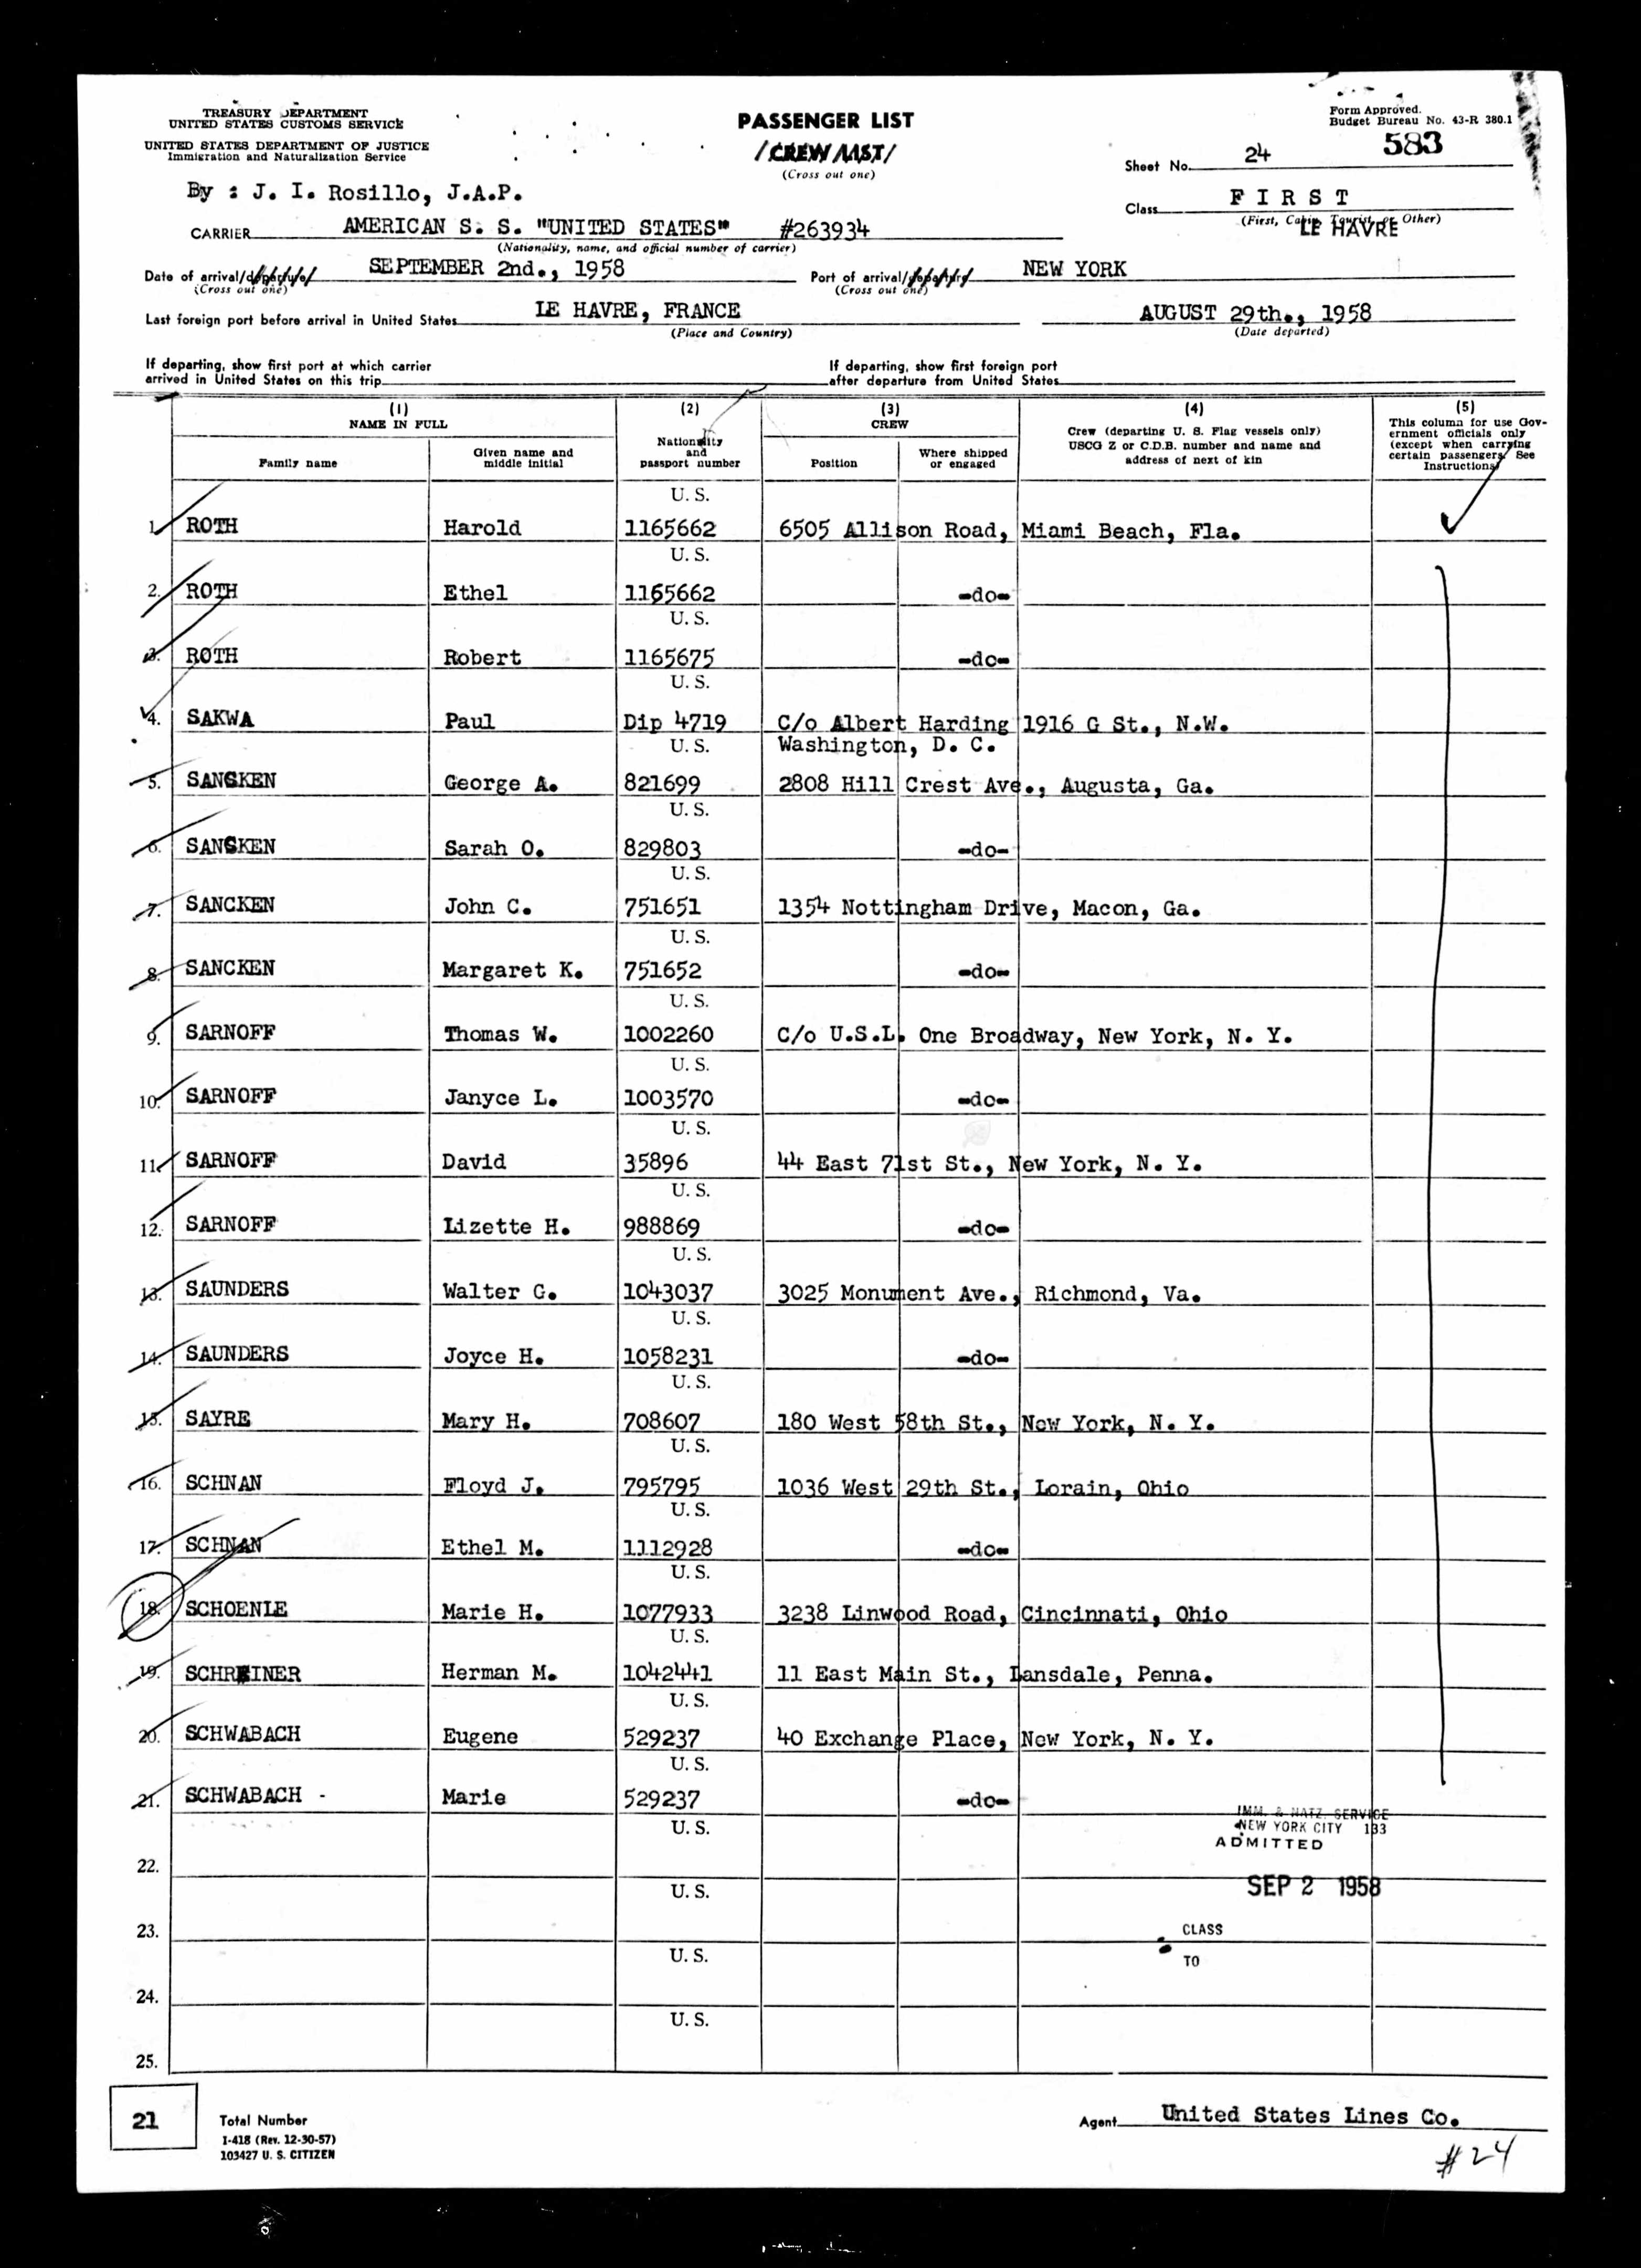 TREASURY DEPARTMENT
UNITED STATES CUSTOMS SERVICE
UNITED STATES DEPARTMENT OF JUSTICE
Immigration and Naturalization Service
PASSENGER LIST
/CREW LIST/
(Cross out one)
Form Approved.
Budget Bureau No. 43-R 380.1
583
Sheet No. 24
By : J. I. Rosillo, J.A.P.
Class F I R S T
(First, Cabin, Tourist, or Other)
LE HAVRE
CARRIER AMERICAN S. S. "UNITED STATES" #263934
(Nationality, name, and official number of carrier)
Date of arrival/departure/ SEPTEMBER 2nd., 1958 Port of arrival/departure NEW YORK
(Cross out one) (Cross out one)
Last foreign port before arrival in United States LE HAVRE, FRANCE AUGUST 29th., 1958
(Place and Country) (Date departed)
If departing, show first port at which carrier If departing, show first foreign port
arrived in United States on this trip after departure from United States
(1) (2) (3) (4) (5)
NAME IN FULL
Family name
Given name and
middle initial
Nationality
and
passport number
CREW
Position
Where shipped
or engaged
Crew (departing U. S. Flag vessels only)
USCG Z or C.D.B. number and name and
address of next of kin
This column for use Gov-
ernment officials only
(except when carrying
certain passengers. See
Instructions)
U. S.
1. ROTH Harold 1165662 6505 Allison Road, Miami Beach, Fla.
U. S.
2. ROTH Ethel 1165662 -do-
U. S.
3. ROTH Robert 1165675 -do-
U. S.
4. SAKWA Paul Dip 4719 C/o Albert Harding 1916 G St., N.W.
U. S. Washington, D. C.
5. SANCKEN George A. 821699 2808 Hill Crest Ave., Augusta, Ga.
U. S.
6. SANCKEN Sarah O. 829803 -do-
U. S.
7. SANCKEN John C. 751651 1354 Nottingham Drive, Macon, Ga.
U. S.
8. SANCKEN Margaret K. 751652 -do-
U. S.
9. SARNOFF Thomas W. 1002260 C/o U.S.L. One Broadway, New York, N. Y.
U. S.
10. SARNOFF Janyce L. 1003570 -do-
U. S.
11. SARNOFF David 35896 44 East 71st St., New York, N. Y.
U. S.
12. SARNOFF Lizette H. 988869 -do-
U. S.
13. SAUNDERS Walter G. 1043037 3025 Monument Ave., Richmond, Va.
U. S.
14. SAUNDERS Joyce H. 1058231 -do-
U. S.
15. SAYRE Mary H. 708607 180 West 58th St., New York, N. Y.
U. S.
16. SCHNAN Floyd J. 795795 1036 West 29th St., Lorain, Ohio
U. S.
17. SCHNAN Ethel M. 1112928 -do-
U. S.
18. SCHOENLE Marie H. 1077933 3238 Linwood Road, Cincinnati, Ohio
U. S.
19. SCHREINER Herman M. 1042441 11 East Main St., Lansdale, Penna.
U. S.
20. SCHWABACH Eugene 529237 40 Exchange Place, New York, N. Y.
U. S.
21. SCHWABACH - Marie 529237 -do-
U. S.
IMM. & NATZ. SERVICE
NEW YORK CITY 133
ADMITTED
22.
U. S.
SEP 2 1958
23.
CLASS
U. S.
TO
24.
U. S.
25.
21
Total Number
I-418 (Rev. 12-30-57)
103427 U. S. CITIZEN
Agent United States Lines Co.
#24